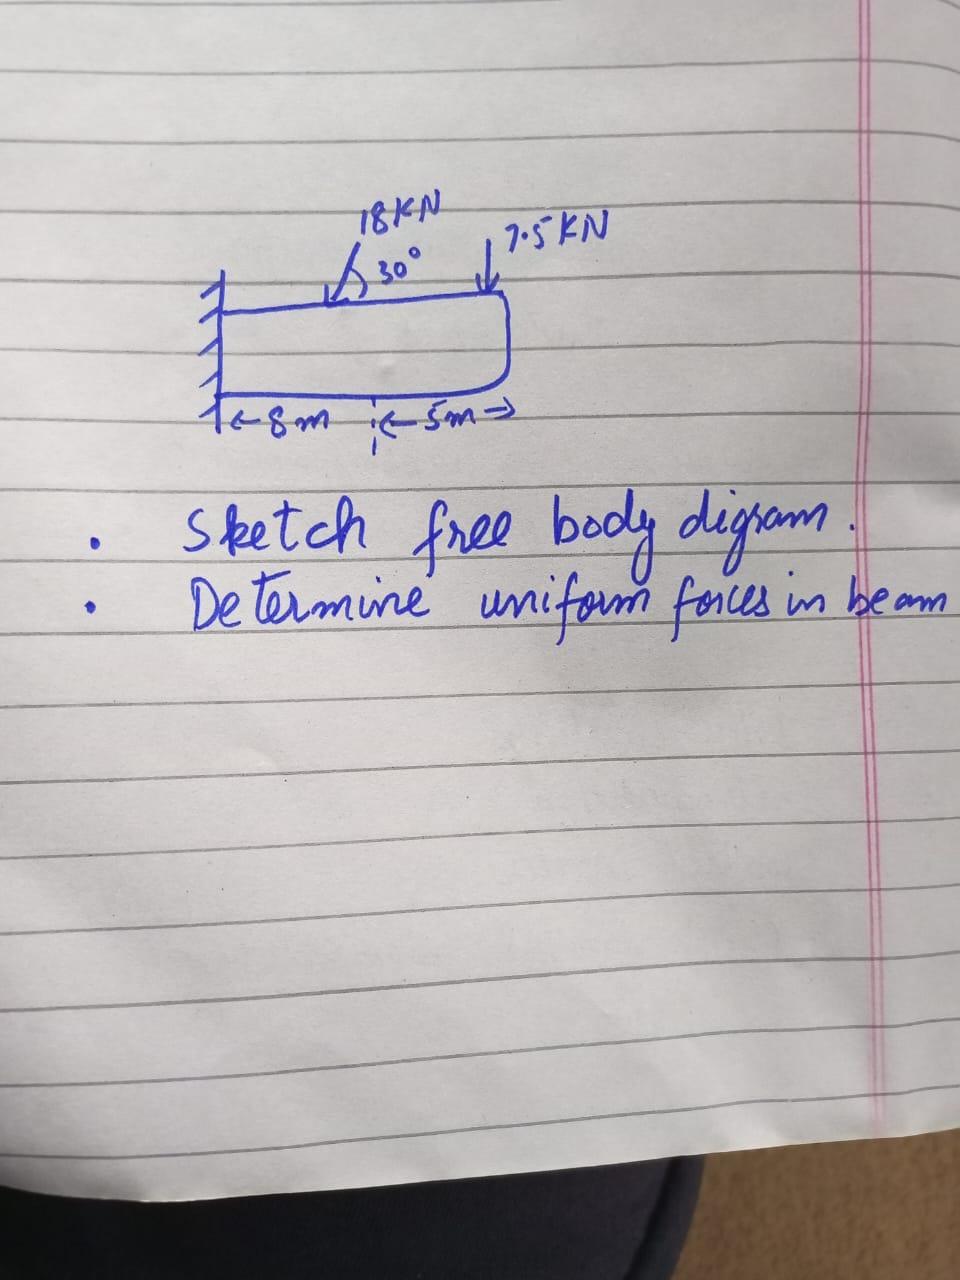 18KN
7.5 KN
30°
←8m ←5m→
• Sketch free body digram.
• Determine uniform forces in beam